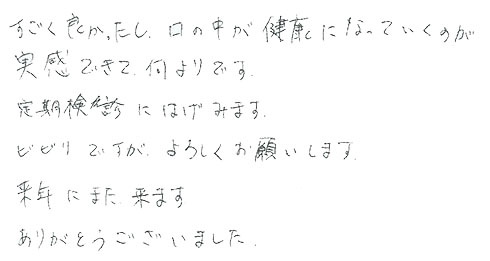 すごく良かったし、口の中が健康になっていくのが
実感できて、何よりです。
定期検診にはげみます。
ビビリですが、よろしくお願いします。
来年にまた、来ます
ありがとうございました。